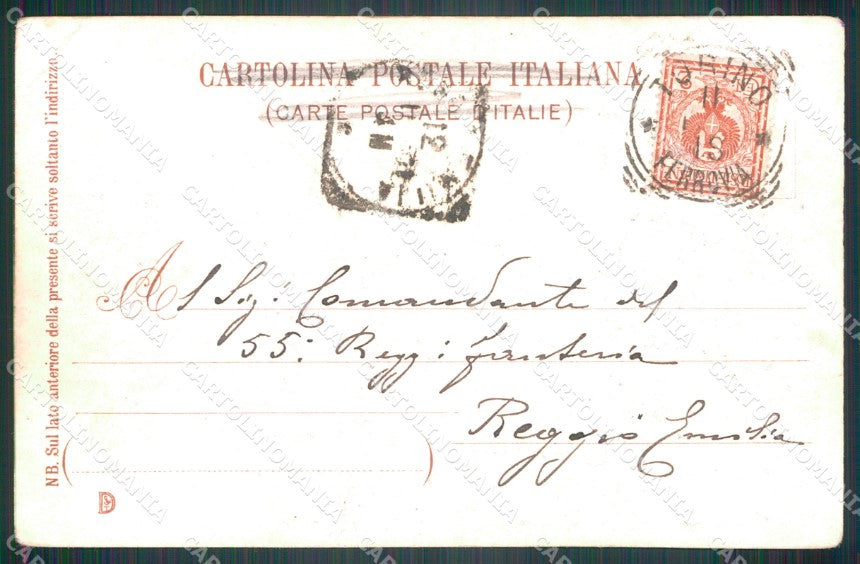 CARTOLINA POSTALE ITALIANA
(CARTE POSTALE D'ITALIE)
TORINO
11
15
FERROVIA
Al Sig: Comandante del
55: Regg: fanteria
Reggio Emilia
NB. Sul lato anteriore della presente si scrive soltanto l'indirizzo.
D
CARTOLINOMANIA